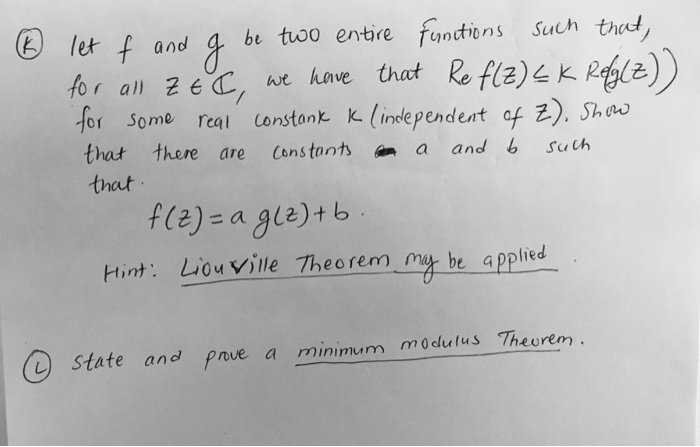 (K) let f and g be two entire functions such that,
for all z ∈ ℂ, we have that Re f(z) ≤ k Re(g(z))
for some real constank k (independent of z). Show
that there are constants a and b such
that.
f(z) = a g(z) + b.
Hint: Liouville Theorem may be applied.
(L) state and prove a minimum modulus Theorem.